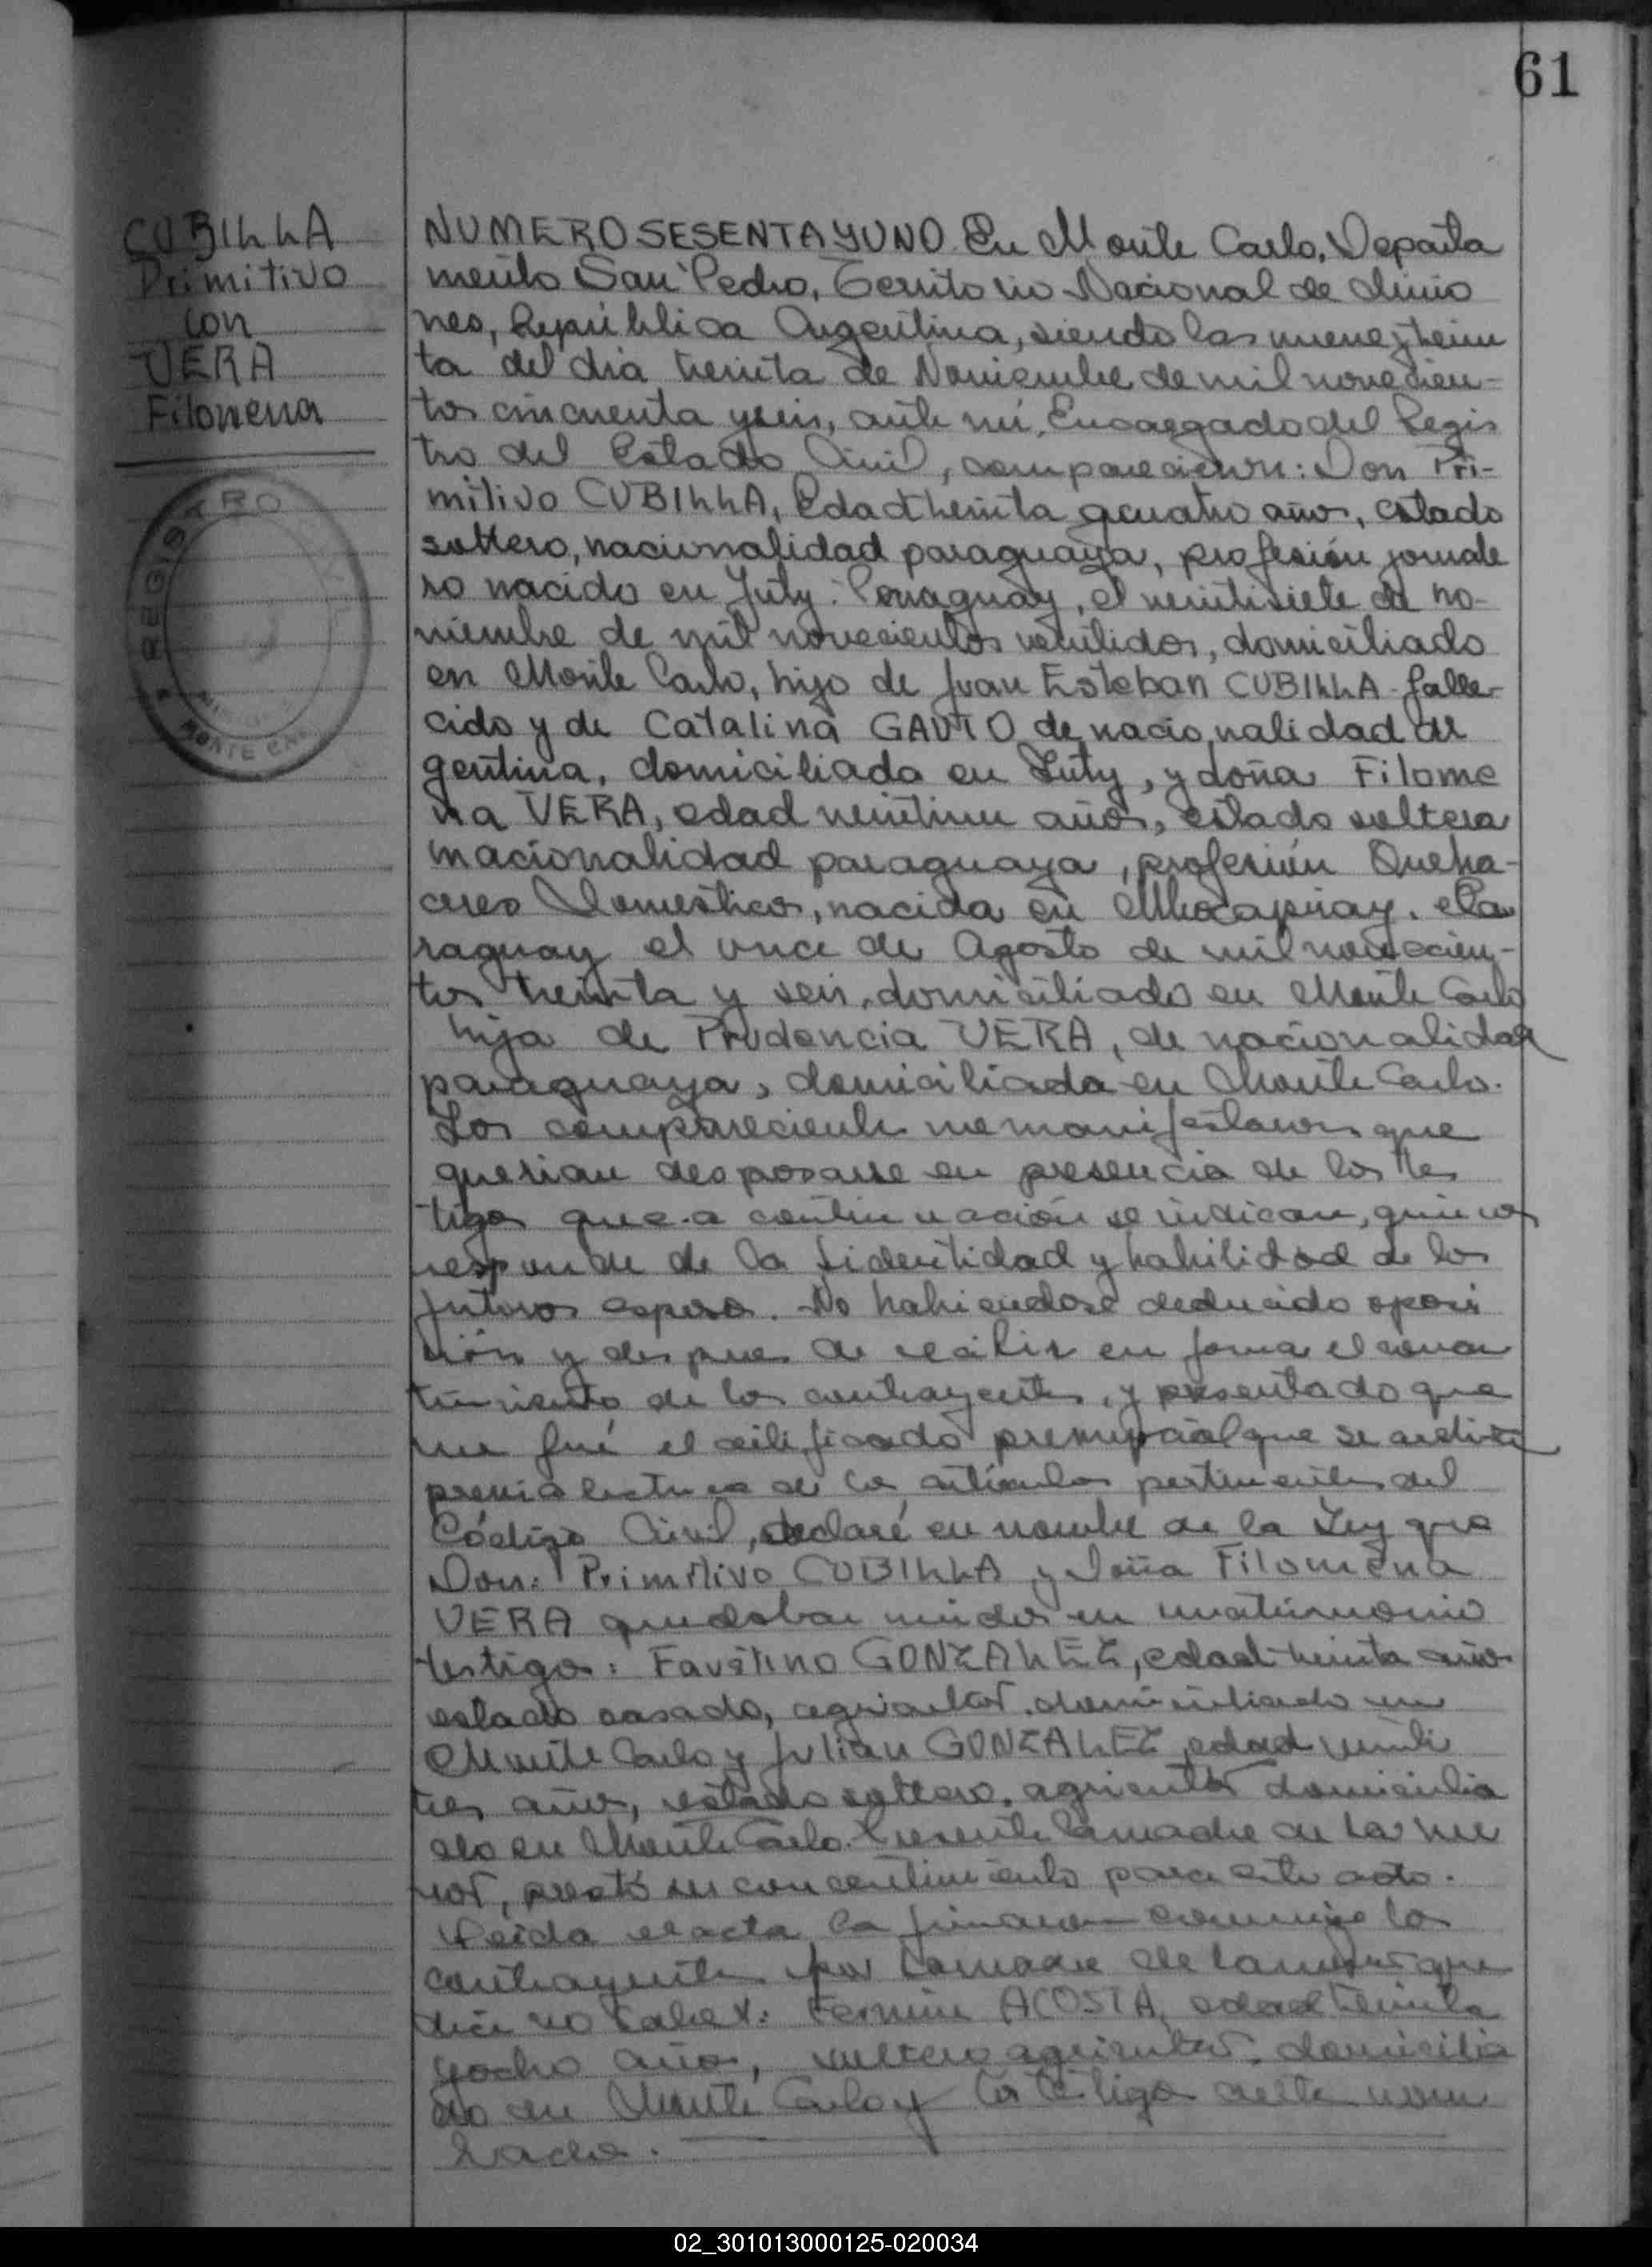 61
CUBILLA
Primitivo
con
VERA
Filomena
REGISTRO CIVIL
MONTE CARLO
NUMERO SESENTA Y UNO. En Monte Carlo, Departa
mento San Pedro, Territorio Nacional de Misio
nes, República Argentina, siendo las nueve y trein
ta del dia treinta de Noviembre de mil novecien-
tos cincuenta y seis, ante mi, Encargado del Regis
tro del Estado Civil, comparecieron: Don Pri-
mitivo CUBILLA, Edad treinta y cuatro años, estado
soltero, nacionalidad paraguaya, profesión jornale
ro nacido en Yuty. Paraguay, el veintisiete de no-
viembre de mil novecientos veintidos, domiciliado
en Monte Carlo, hijo de Juan Esteban CUBILLA falle-
cido y de Catalina GAUTO de nacionalidad ar
gentina, domiciliada en Yuty, y doña Filome
na VERA, edad veintiun años, estado soltera
nacionalidad paraguaya, profesión Queha-
ceres Domesticos, nacida en Mbocayaty. Pa
raguay el once de Agosto de mil novecien-
tos treinta y seis, domiciliado en Monte Carlo
hija de Prudencia VERA, de nacionalidad
paraguaya, domiciliada en Monte Carlo.
Los compareciente me manifestaron que
querian desposarse en presencia de los tes
tigos que a continuación se indican, quienes
responde de la identidad y habilidad de los
futuros esposos. No habiendose deducido oposi
ción y despues de recibir en forma el consen
timiento de los contrayentes, y presentado que
me fué el certificado prenupcial que se archiva
previa lectura de los artículos pertinentes del
Código Civil, declaré en nombre de la Ley que
Don: Primitivo CUBILLA y Doña Filomena
VERA quedaban unidos en matrimonio
testigos: Faustino GONZALEZ, edad treinta años
estado casado, agricultor, domiciliado en
Monte Carlo y Julian GONZALEZ, edad veinti
tres años, estado soltero, agricultor domicilia
do en Monte Carlo. Presente la madre de la me
nor, prestó su concentimiento para este acto.
Leida el acta la firmaron conmigo los
contrayentes por la madre de la menor que
dice no saber: Fermin ACOSTA, edad treinta
y ocho años, soltero agricultor, domicilia
do en Monte Carlo y los testigos antes nom
brados.
02_301013000125-020034